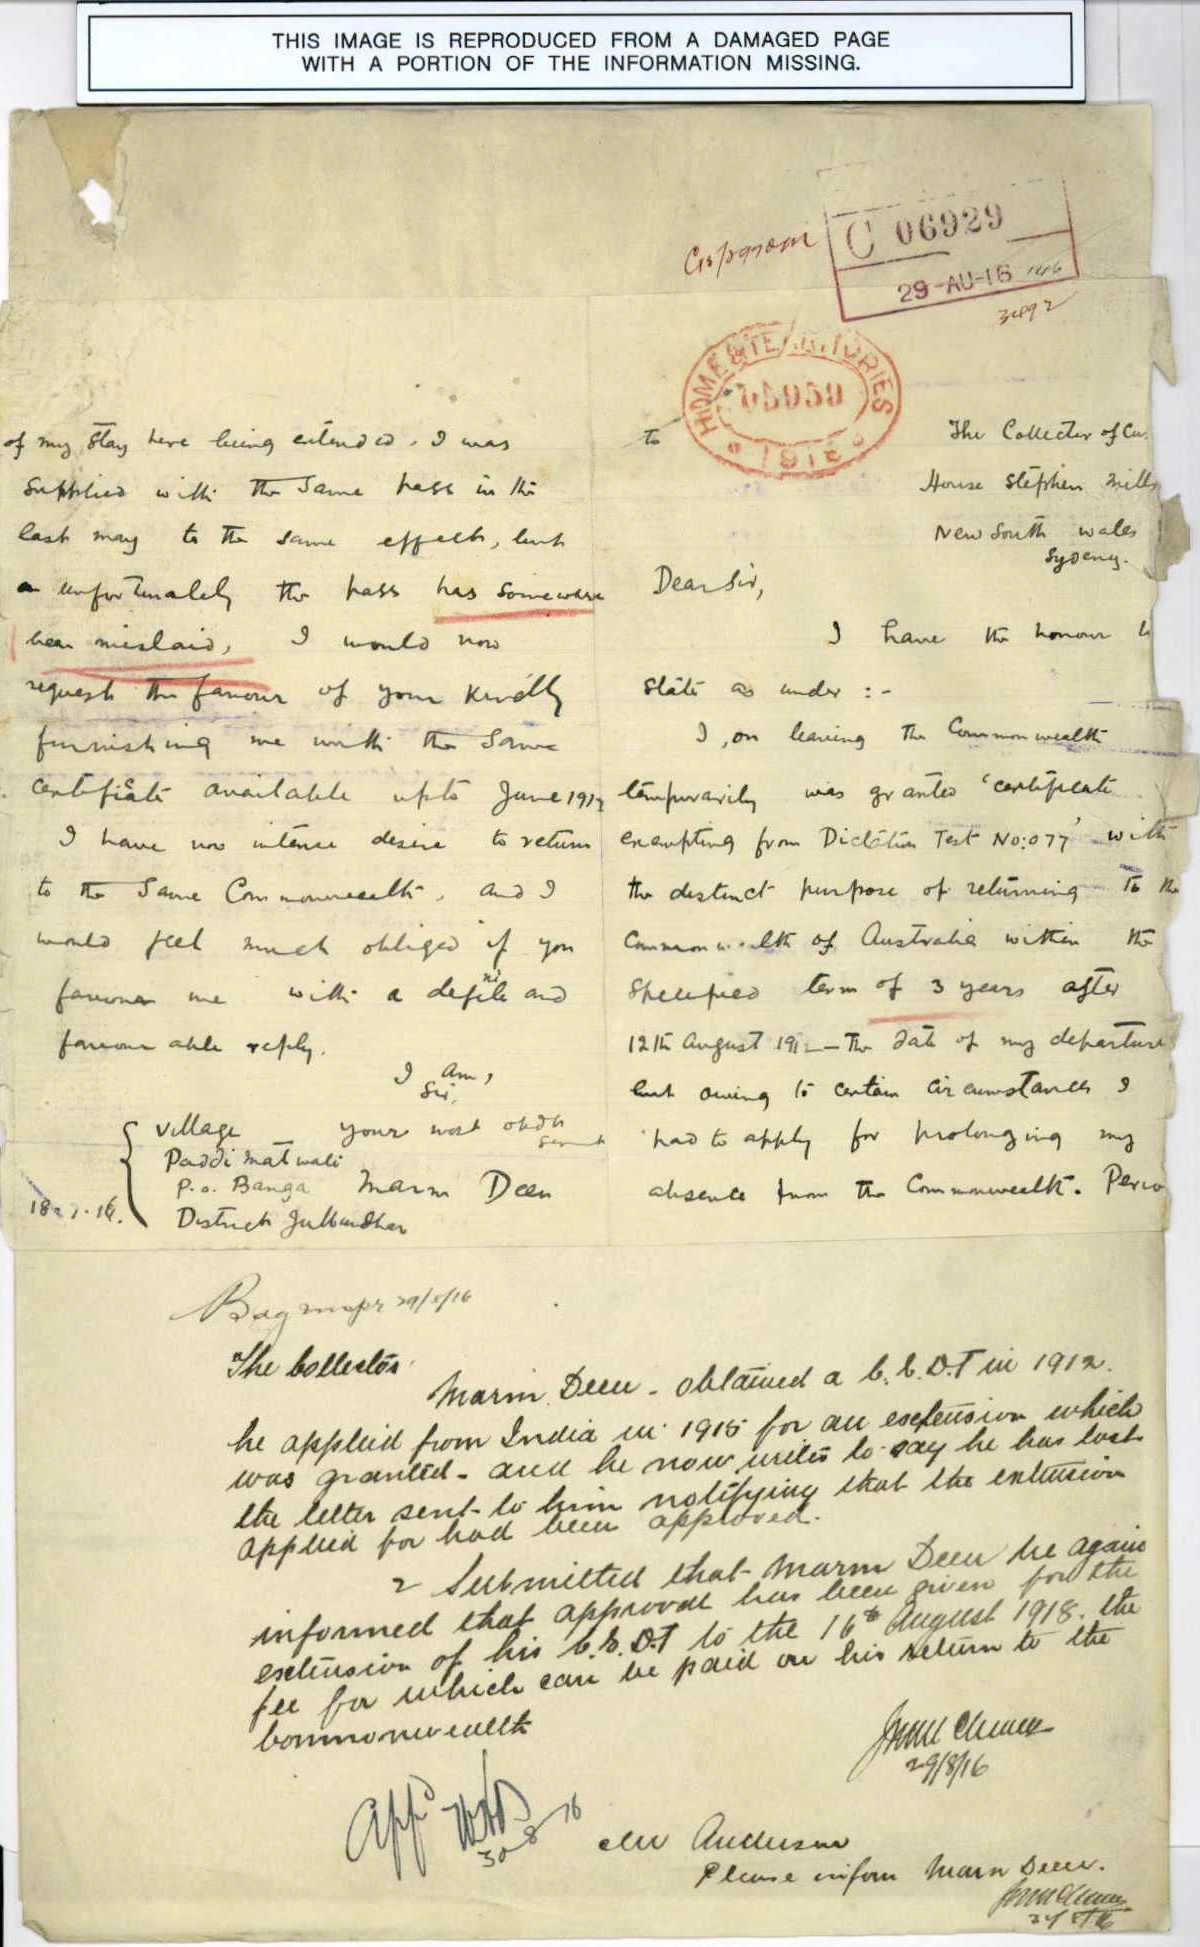 THIS IMAGE IS REPRODUCED FROM A DAMAGED PAGE
WITH A PORTION OF THE INFORMATION MISSING.
C 06929
29-AU-16
HOME & TERRITORIES
1916
to
The Collector of Cu
House Stephen Mills
New South wales
Sydeny.
Dear Sir,
I have the honour to
state as under :-
I, on leaving the Commonwealth
temporarily was granted 'certificate
exempting from Dictation Test No: 077' with
the distinct purpose of returning to the
Commonwealth of Australia within the
specified term of 3 years after
12th August 191 - the date of my departure
but owing to certain circumstances I
had to apply for prolonging my
absence from the Commonwealth. Perio
of my stay here being extended. I was
supplied with the same pass in the
last may to the same effect, but
unfortunately the pass has someware
been mislaid, I would now
request the favour of your kindly
furnishing me with the same
certificate available upto June 191
I have now intense desire to return
to the same Commonwealth, and I
would feel much obliged if you
favour me with a definite and
favourable reply.
I am,
Sir,
your most obdt
servant
Marm Deen
village
Paddi Matwali
P.o. Banga
District Jullundhar
18-7-16.
29/8/16
The Collector
Marm Deen - obtained a C.E.D.T in 1912.
he applied from India in 1915 for an extension which
was granted - and he now writes to say he has lost
the letter sent to him notifying that the extension
applied for had been approved.
2 Submitted that Marm Deen be again
informed that approval has been given for the
extension of his C.E.D.T to the 16th August 1918. the
fee for which can be paid on his return to the
Commonwealth
29/8/16
Appd
30-8-16
Mr Anderson
Please inform Marm Deen.